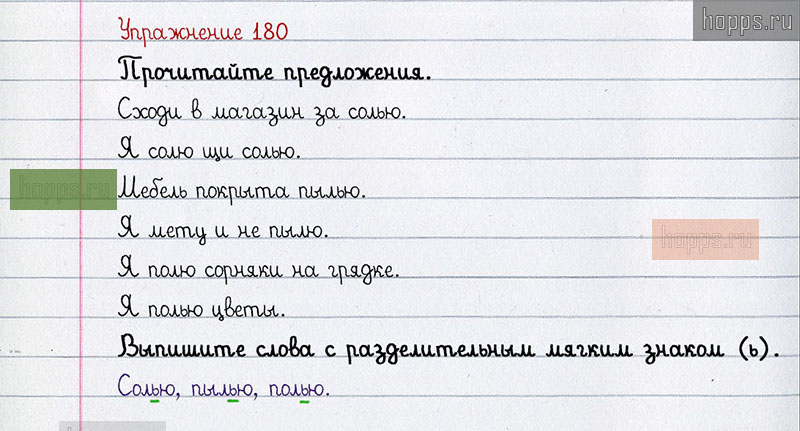 hopps.ru
Упражнение 180
Прочитайте предложения.
Сходи в магазин за солью.
Я солю щи солью.
hopps.ru
Мебель покрыта пылью.
Я мету и не пылю.
hopps.ru
Я полю сорняки на грядке.
Я полью цветы.
Выпишите слова с разделительным мягким знаком (ь).
Солью, пылью, полью.